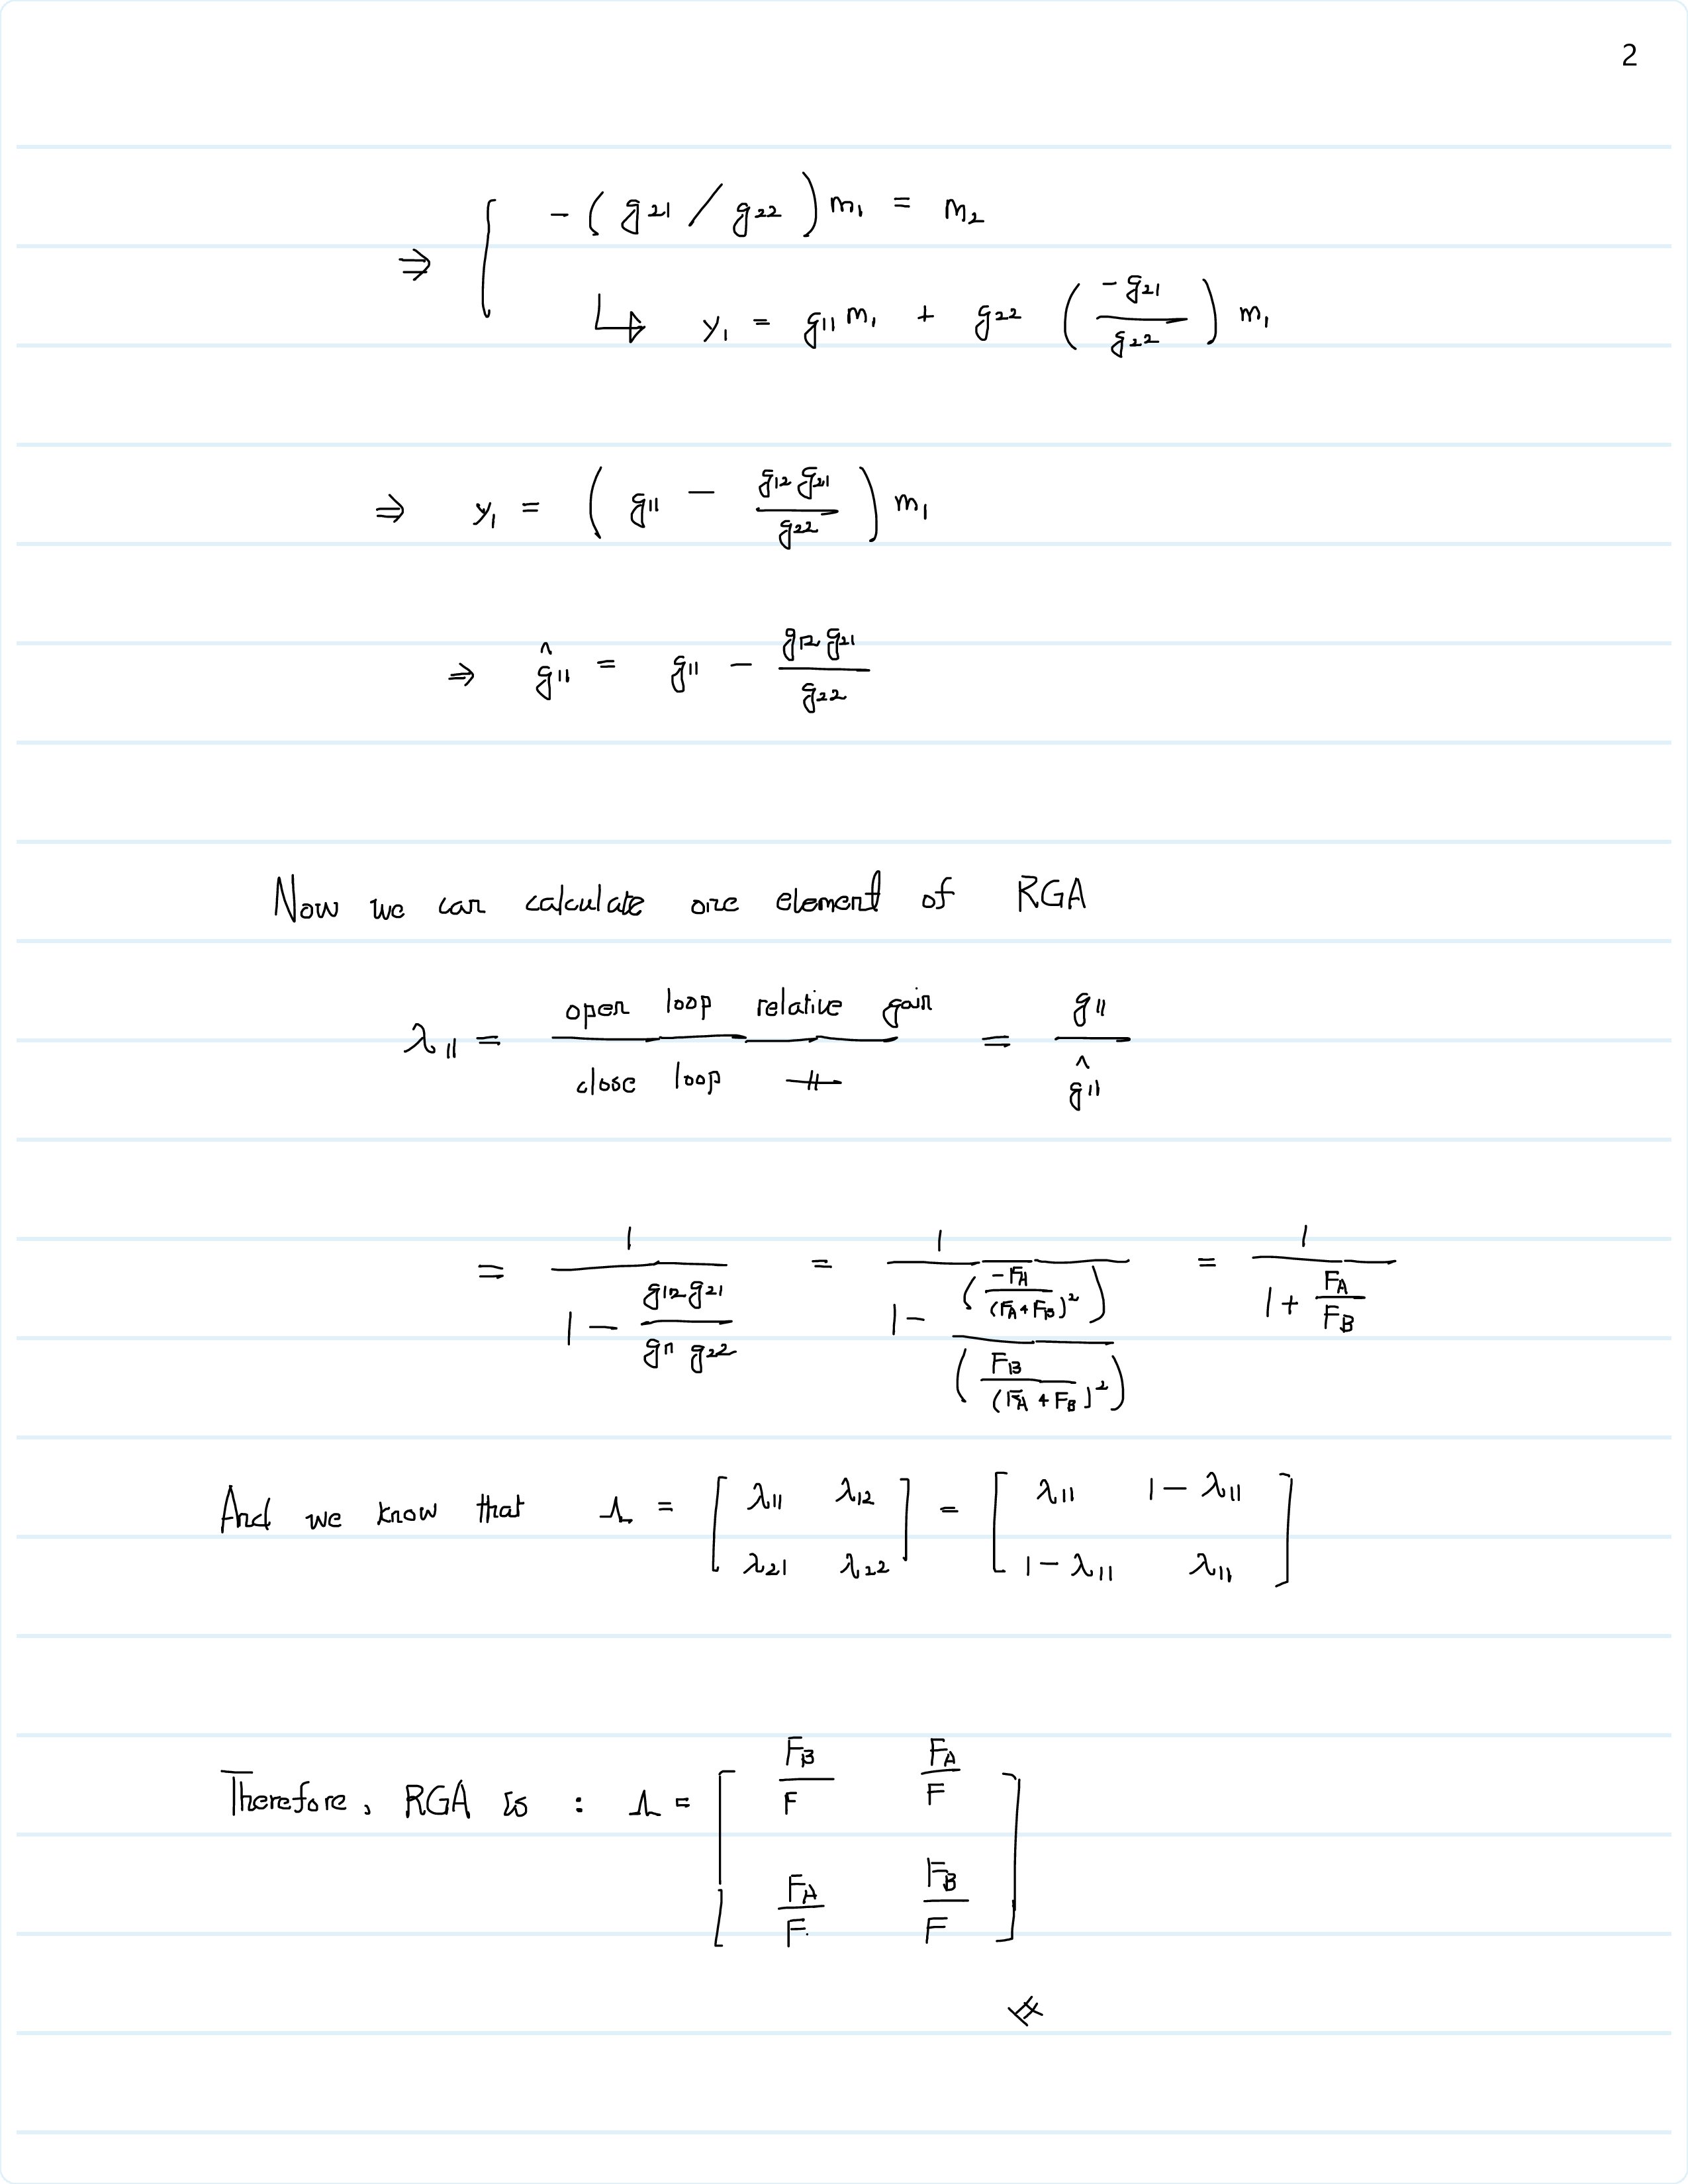 2
⇒ { - ( g21 / g22 ) m1 = m2
↳ y1 = g11 m1 + g22 ( -g21 / g22 ) m1
⇒ y1 = ( g11 - g12 g21 / g22 ) m1
⇒ ĝ11 = g11 - g12 g21 / g22
Now we can calculate one element of RGA
λ11 = open loop relative gain / close loop 〃 = g11 / ĝ11
= 1 / ( 1 - g12 g21 / g11 g22 ) = 1 / ( 1 - ( -FA / (FA + FB)² ) / ( FB / (FA + FB)² ) ) = 1 / ( 1 + FA / FB )
And we know that Λ = [ λ11 λ12 ; λ21 λ22 ] = [ λ11 1 - λ11 ; 1 - λ11 λ11 ]
Therefore, RGA is : Λ = [ FB / F FA / F ; FA / F FB / F ]